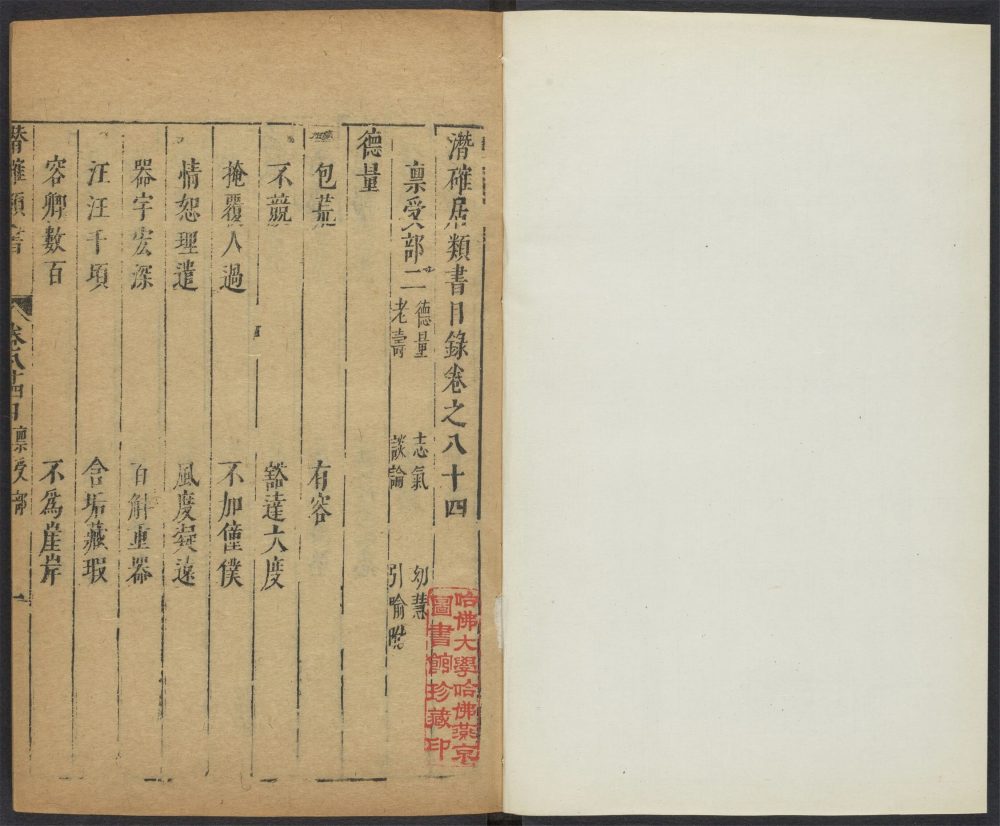 潛確居類書目錄卷之八十四
稟受部二 德量 志氣 幼慧
老壽 談論 引喻附
德量
包荒 有容
不競 豁達大度
掩覆人過 不加僮僕
情恕理遣 風度凝遠
器宇宏深 百斛重器
汪汪千頃 含垢藏瑕
容卿數百 不為崖岸
潛確類書 卷八十四目 稟受部 一
哈佛大學哈佛燕京
圖書館珍藏印